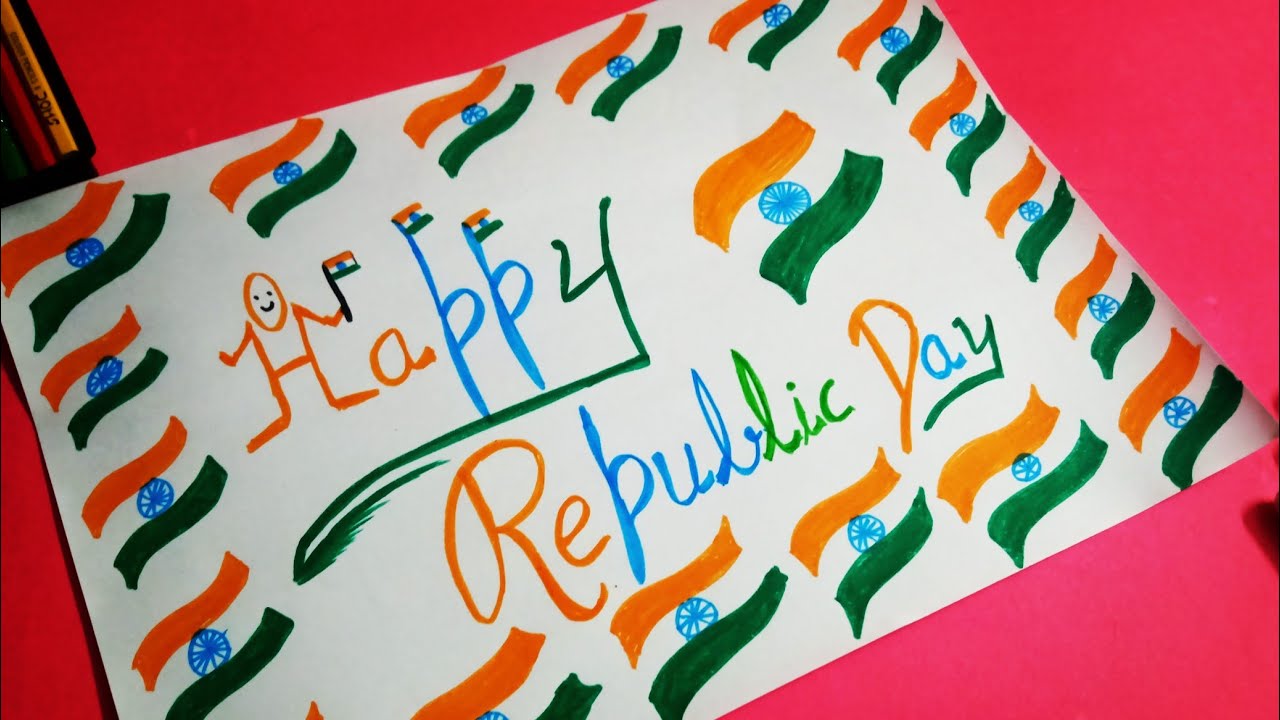 Happy
Republic Day